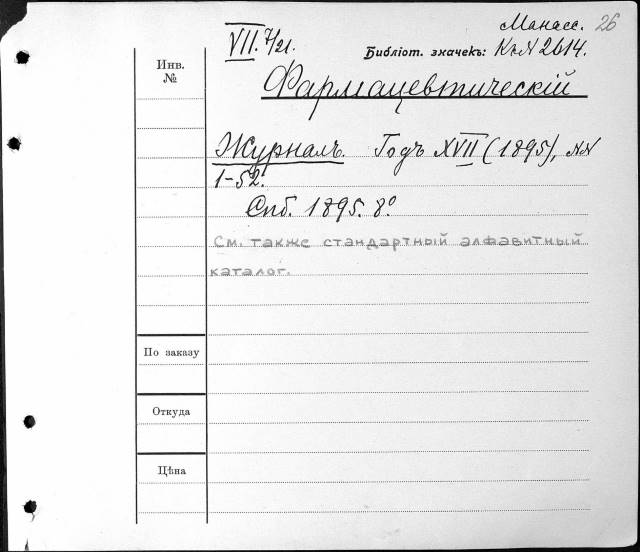 Манасс. 26
VII. 7/21.
Библіот. значекъ: К.л N 2614.
Инв.
№
Фармацевтическій
Журналъ. Годъ XVII (1895), NN
1-52.
Спб. 1895. 8°
См. также стандартный алфавитный
каталог.
По заказу
Откуда
Цѣна